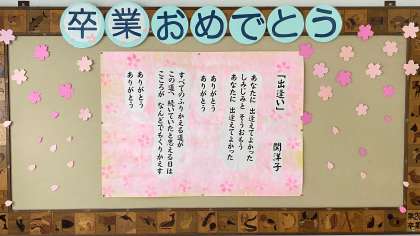 卒業おめでとう
「出逢い」
関洋子
あなたに 出逢えてよかった
しみじみと そうおもう
あなたに 出逢えてよかった
ありがとう
ありがとう
すべてのふりかえる道が
この道へ 続いていたと思える日は
こころが なんどでもくりかえす
ありがとう
ありがとう